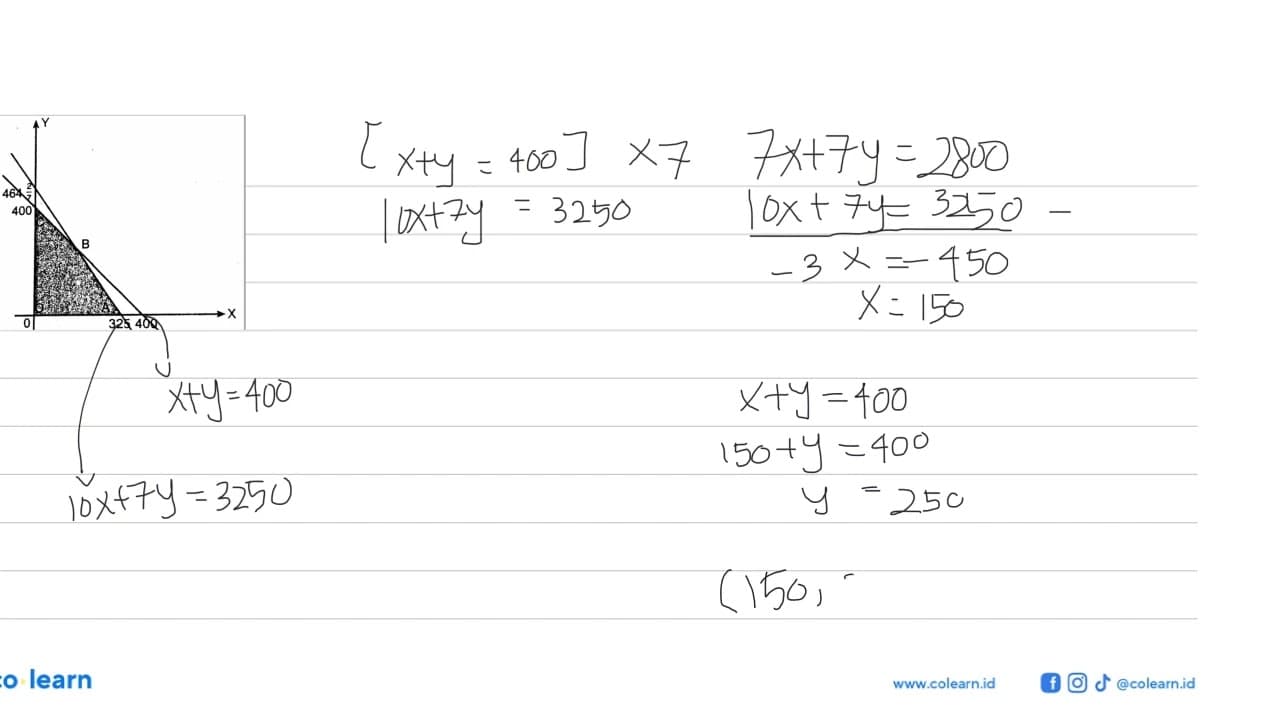 Y
464 2/7
400
B
0
325 400
X
x+y=400
10x+7y=3250
[x+y = 400] x7
10x+7y = 3250
7x+7y=2800
10x+7y= 3250 -
-3 x =-450
x= 150
x+y=400
150+y=400
y = 250
(150,
co learn
www.colearn.id
@colearn.id